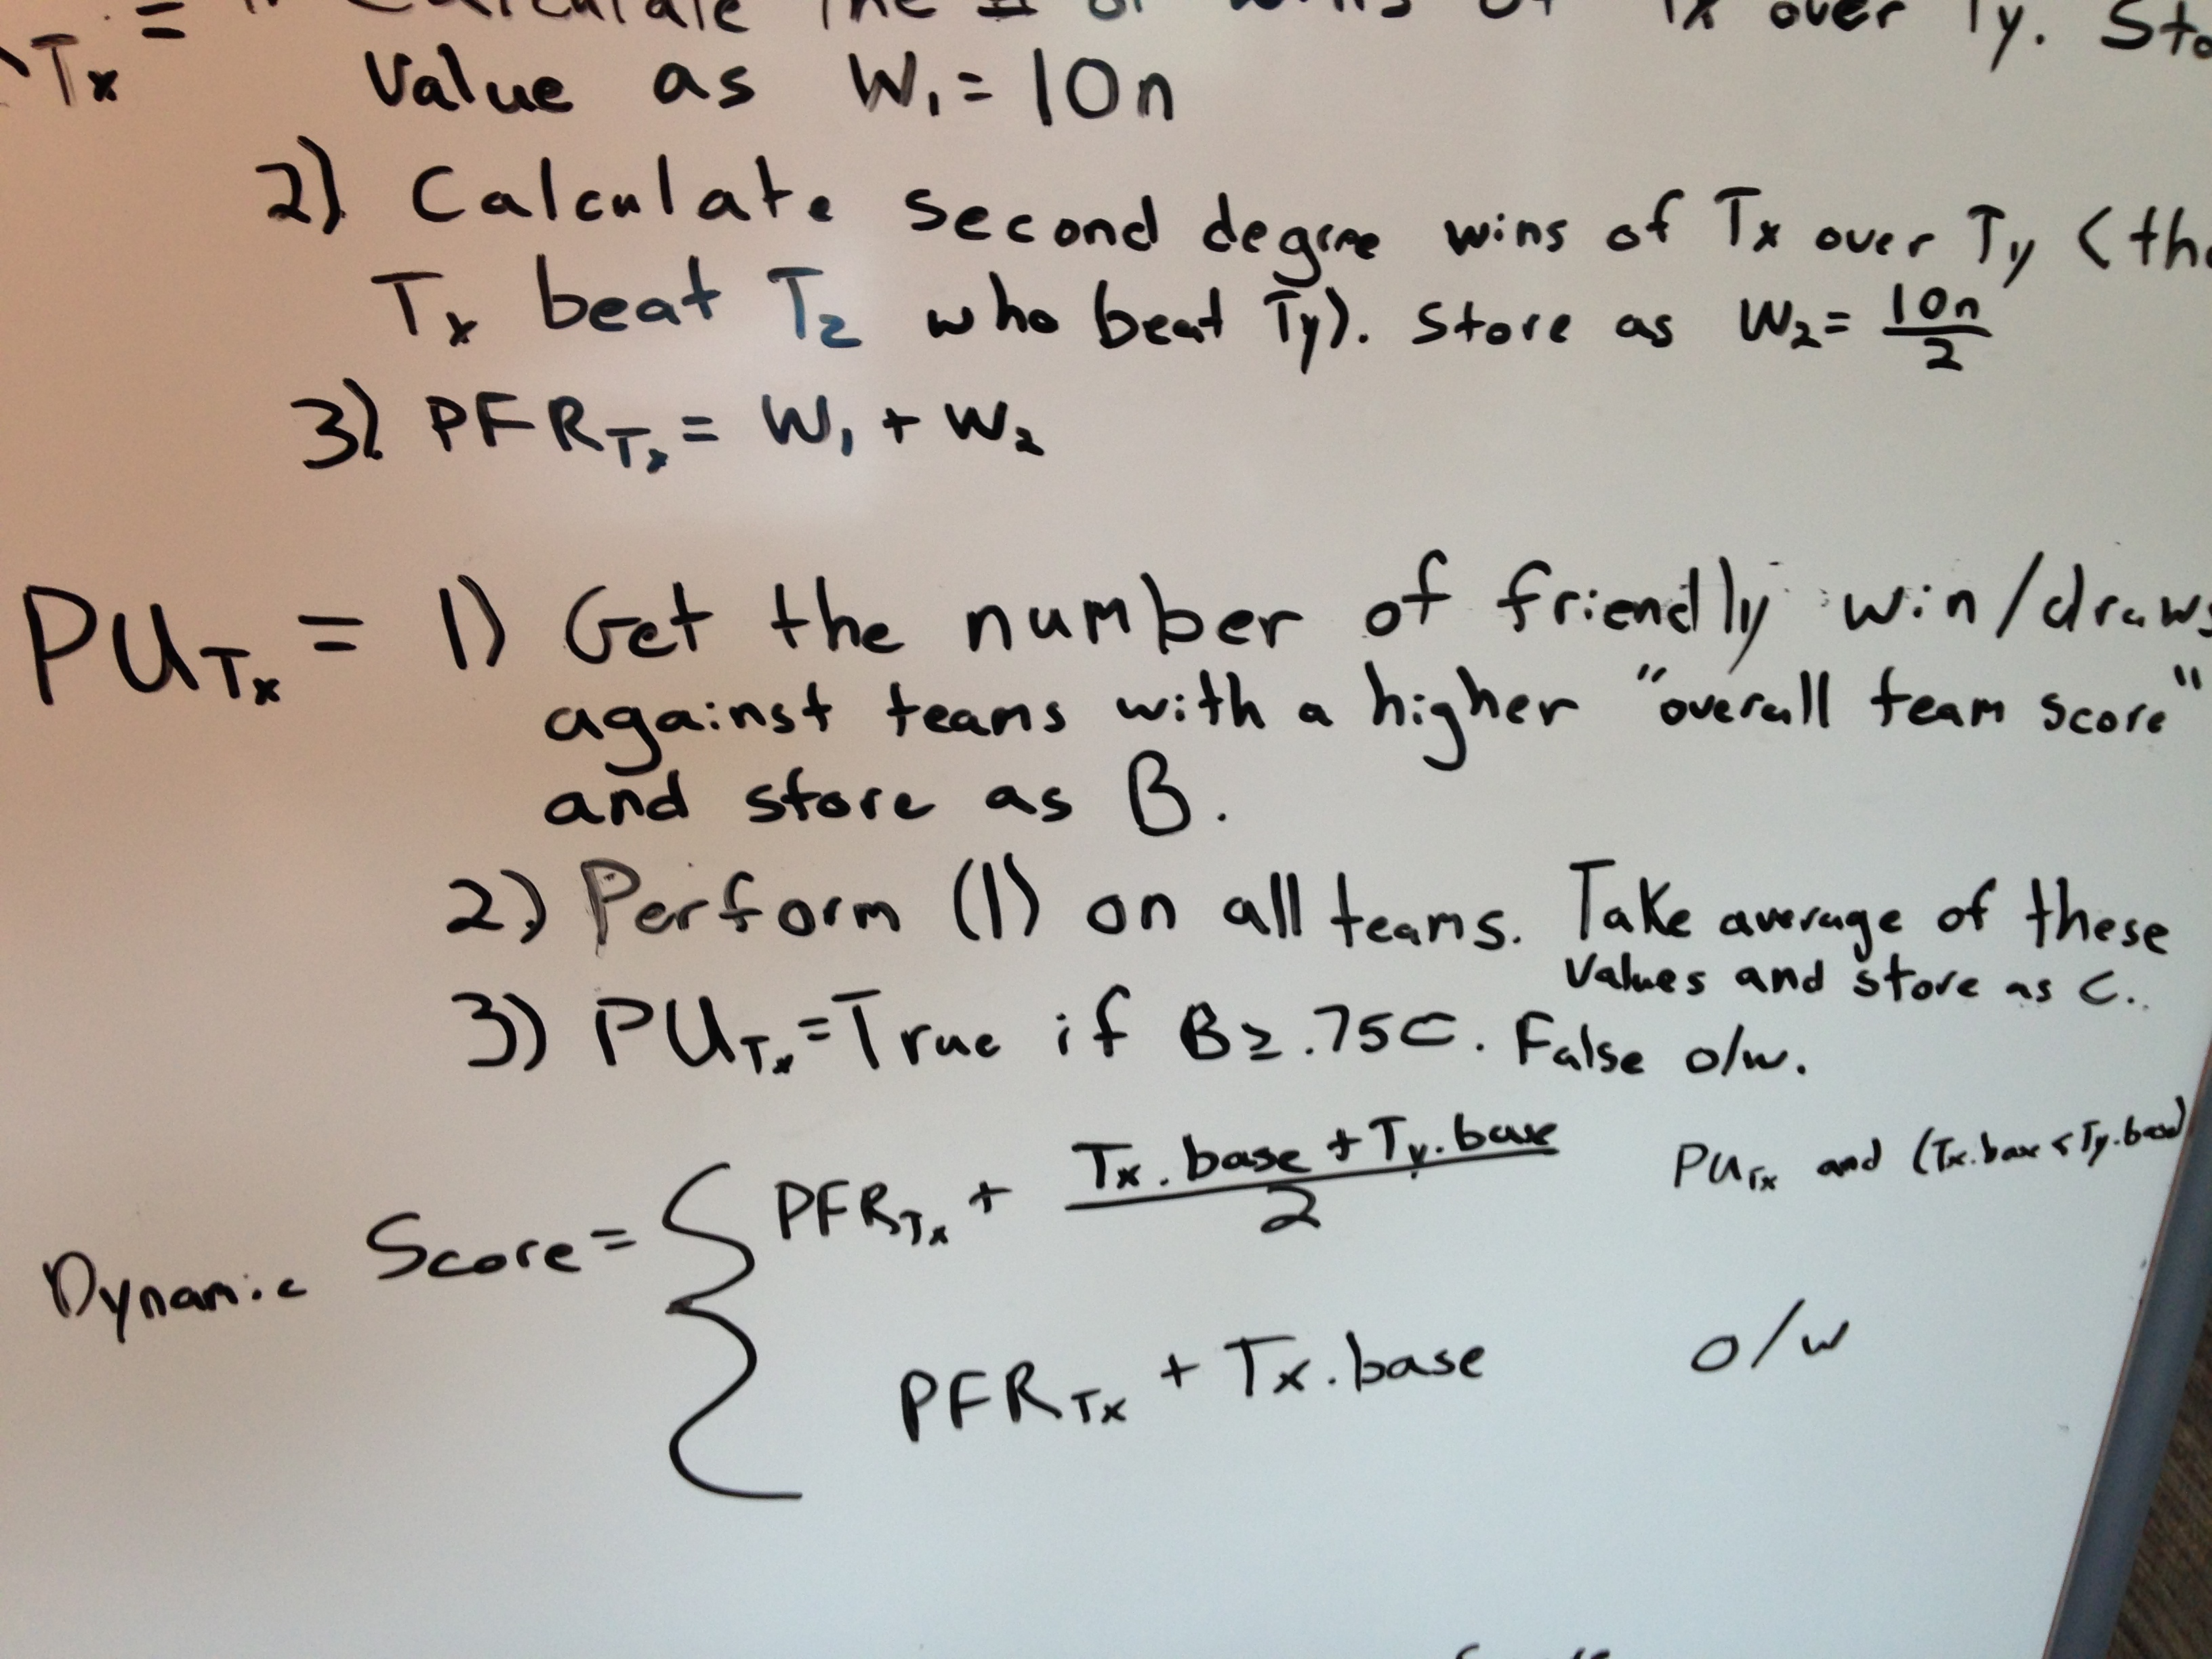 Tx = Calculate the # of wins of Tx over Ty. Sto
Value as W₁ = 10n
2) Calculate second degree wins of Tx over Ty (th
Tx beat Tz who beat Ty). Store as W₂ = 10n/2
3) PFR_Tx = W₁ + W₂
PU_Tx = 1) Get the number of friendly win/draws
against teams with a higher "overall team score"
and store as B.
2) Perform (1) on all teams. Take average of these
Values and store as C.
3) PU_Tx = True if B ≥ .75C. False o/w.
Dynamic Score = { PFR_Tx + (Tx.base + Ty.base)/2 PU_Tx and (Tx.base < Ty.base)
PFR_Tx + Tx.base o/w